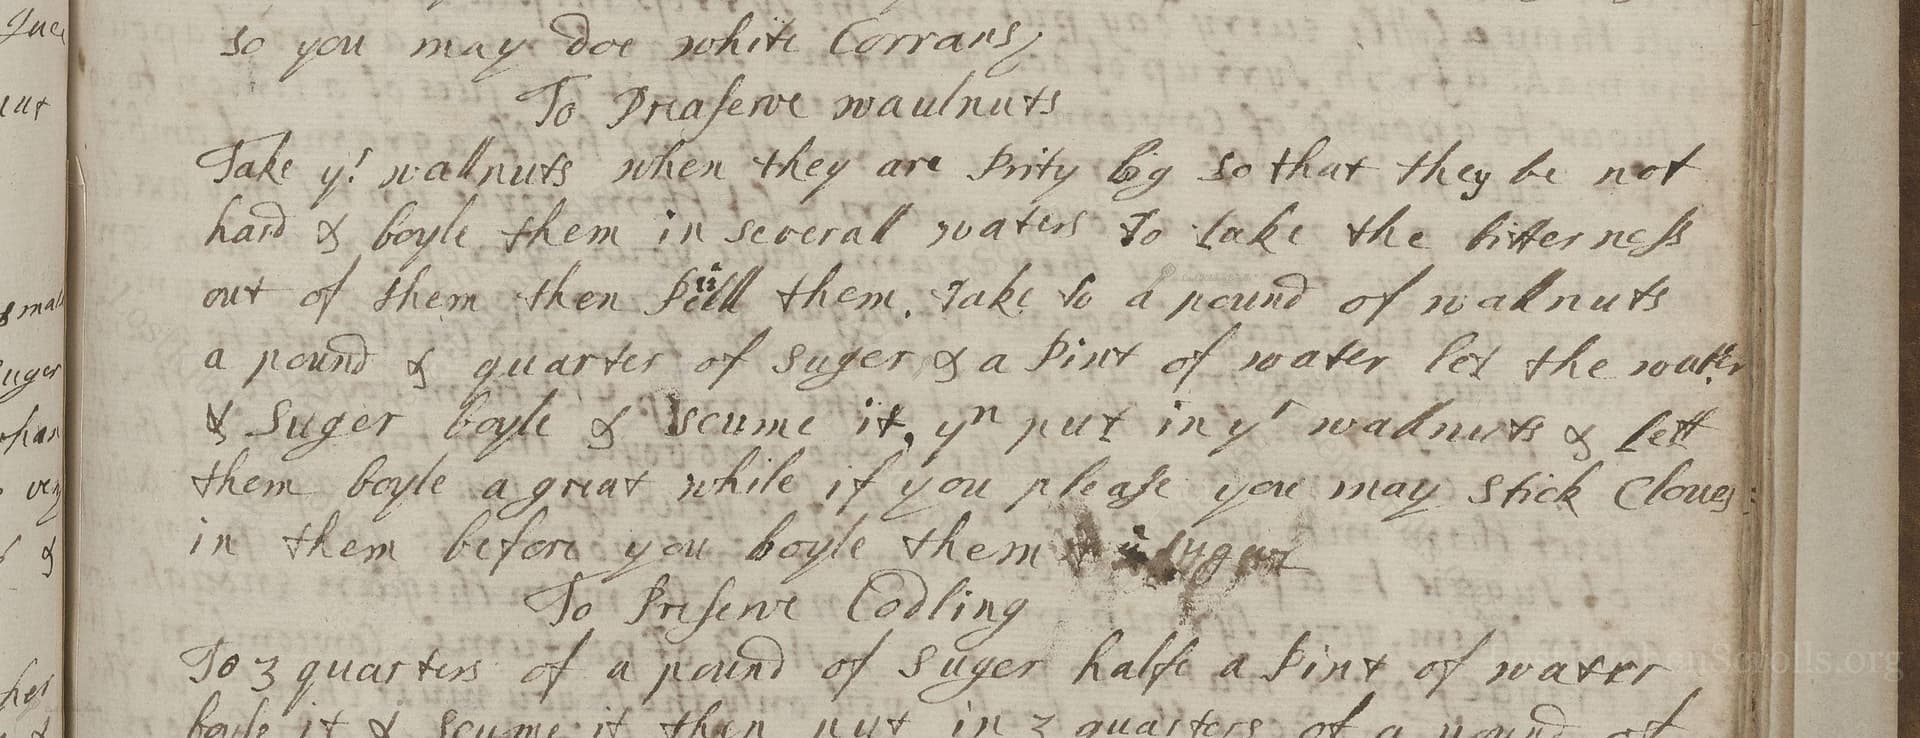 so you may doe white Corrans
To Preaserve waulnuts
Take yr wallnuts when they are Prity big so that they be not
hard & boyle them in severall waters to take the bitterness
out of them then Pill them. Take to a pound of wallnuts
a pound & quarter of suger & a Pint of water let the water
& Suger boyle & scume it, yn put in yr wallnuts & lett
them boyle a great while if you please you may stick Cloves
in them before you boyle them suger
To Preserve Codling
To 3 quarters of a pound of suger halfe a Pint of water
boyle it & scume it then put in 3 quarters of a pound of